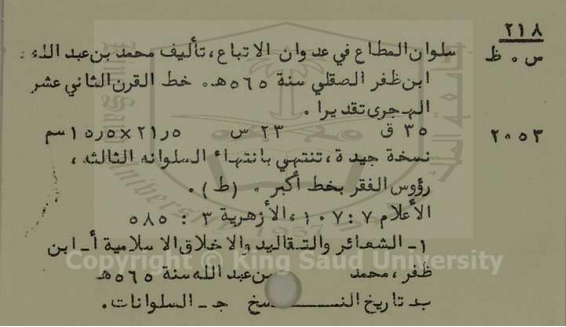 ٢١٨
سلوان المطاع في عدوان الاتباع ، تأليف محمد بن عبد الله ،
س ٠ ظ
ابن ظفر الصقلي سنة ٥٦٥هـ ٠ خط القرن الثاني عشر
الهجرى تقديرا ٠
٢٠٥٣ ٣٥ ق ٢٣ س ٢١٫٥×١٥٫٥ سم
نسخة جيدة ، تنتهي بانتهاء السلوانه الثالثه ،
رؤوس الفقر بخط أكبر ٠ (ط) ٠
الأعلام ٧ : ١٠٧ ، الأزهرية ٣ : ٥٨٥
١ـ الشعائر والتقاليد والاخلاق الاسلامية أـ ابن
ظفر ، محمد بن عبد الله سنة ٥٦٥هـ
بـ تاريخ النسخ جـ السلوانات ٠
Copyright © King Saud University